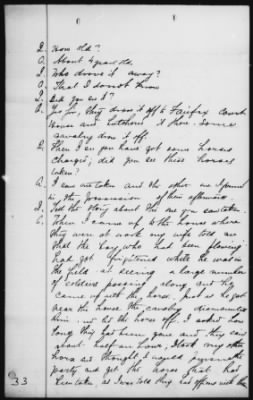 Q. How old?
A. About 4 years old.
Q. Who drove it away?
A. That I do not know
Q. Did you see it?
A. Yes Sir, they drove it off to Fairfax Court
House and butchered it there. Some
cavalry drove it off.
Q. Then I see you have got some horses
charged; did you see these horses
taken?
A. I saw one taken and the other one I found
in the possession of them afterwards
Q. Tell the story about the one you saw taken.
A. When I came up to the house where
they were at work my wife told me
that the boy who had been plowing
had got frightened while he was in
the field at seeing a large number
of soldiers passing along and he
came up with the horse. Just as he got
near the house the cavalry dismounted
him and led the horse off. I asked how
long they had been gone and they said
about half an hour. I took my other
horse and thought I would pursue the
party and get the horse that had
been taken as I was told they had officers with them
33